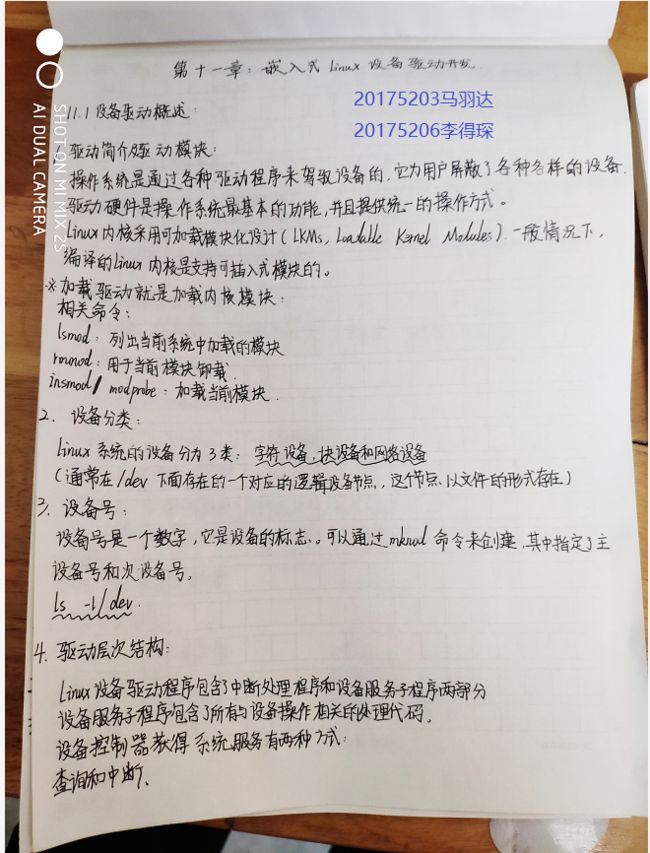 第十一章：嵌入式 Linux 设备驱动开发.
20175203马羽达
11.1 设备驱动概述:
20175206李得琛
1. 驱动简介及驱动模块:
操作系统是通过各种驱动程序来驾驭设备的, 它为用户屏蔽了各种各样的设备.
驱动硬件是操作系统最基本的功能, 并且提供统一的操作方式。
Linux 内核采用可加载模块化设计 (LKMs, Loadable Kernel Modules). 一般情况下,
编译的Linux 内核是支持可插入式模块的。
※加载驱动就是加载内核模块:
相关命令:
lsmod: 列出当前系统中加载的模块
rmmod: 用于当前模块卸载.
insmod/ modprobe: 加载当前模块.
2. 设备分类:
Linux 系统的设备分为3类: 字符设备, 块设备和网络设备
(通常在/dev 下面存在的一个对应的逻辑设备节点, 这个节点以文件的形式存在)
3. 设备号:
设备号是一个数字, 它是设备的标志。可以通过mknod 命令来创建, 其中指定了主
设备号和次设备号,
ls -l/dev.
4. 驱动层次结构:
Linux 设备驱动程序包含了中断处理程序和设备服务子程序两部分
设备服务子程序包含了所有与设备操作相关的处理代码,
设备控制器获得系统服务有两种方式:
查询和中断、
SHOT ON MI MIX 2S
AI DUAL CAMERA